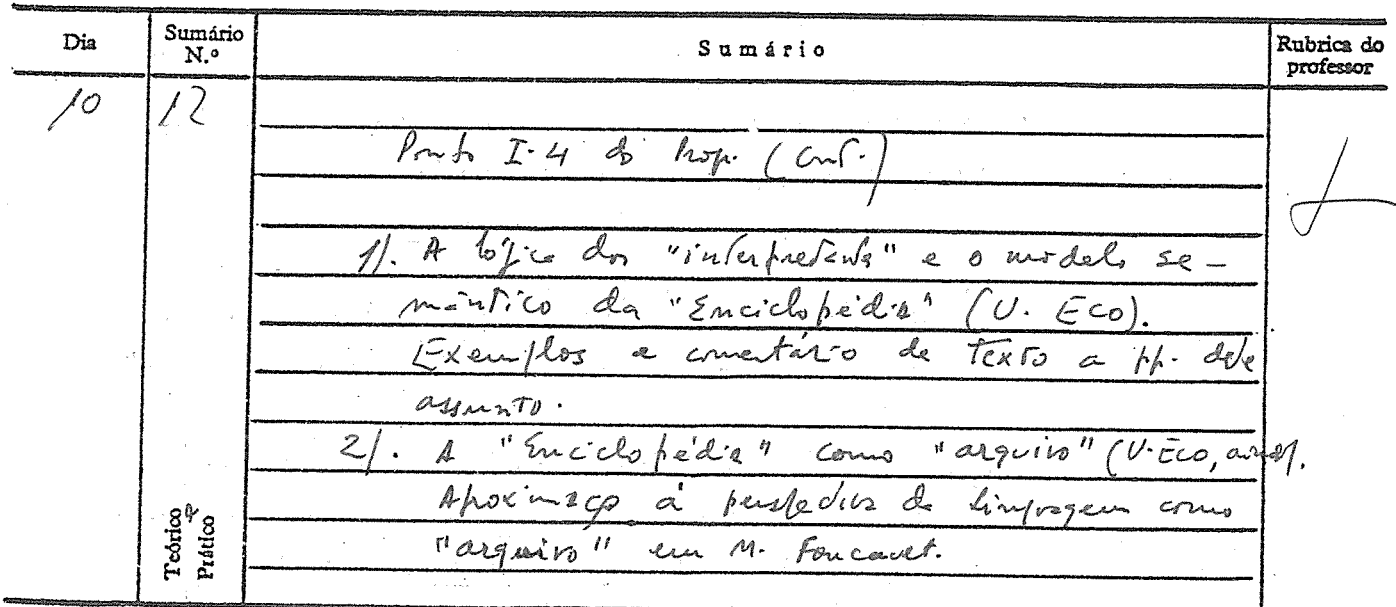 Dia Sumário N.º Sumário Rubrica do professor
10 12
Ponto I-4 do Prog. (Cont.)
1). A lógica dos "interpretants" e o modelo se-
mântico da "Enciclopédia" (U. Eco).
Exemplos e comentário de texto a pp. deste
assunto.
2). A "Enciclopédia" como "arquivo" (U. Eco, ainda).
Aproximação à perspectiva da linguagem como
"arquivo" em M. Foucault.
Teórico e Prático